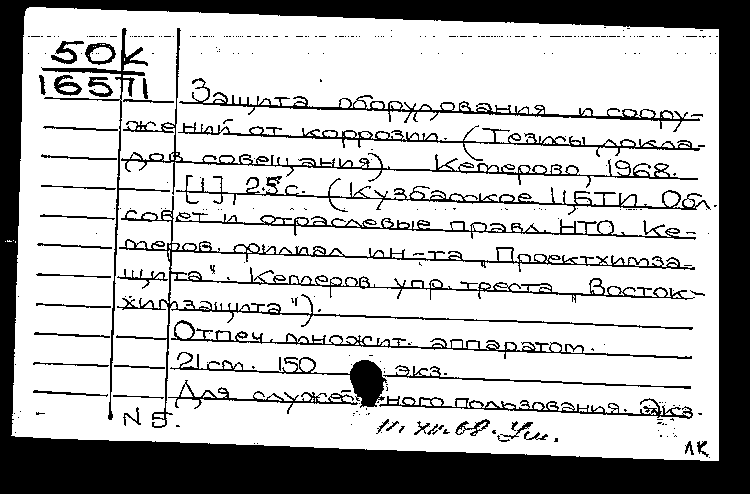 50К
16571
Защита оборудования и соору-
жений от коррозии. (Тезисы докла-
дов совещания). Кемерово, 1968.
[1], 25с. (Кузбасское ЦБТИ. Обл.
совет и отраслевые правл. НТО. Ке-
меров. филиал ин-та „Проектхимза-
щита". Кемеров. упр. треста „Восток-
химзащита").
Отпеч. множит. аппаратом.
21 см. 150 экз.
Для служебного пользования. Экз.
N 5.
11.XII.68.
ЛК